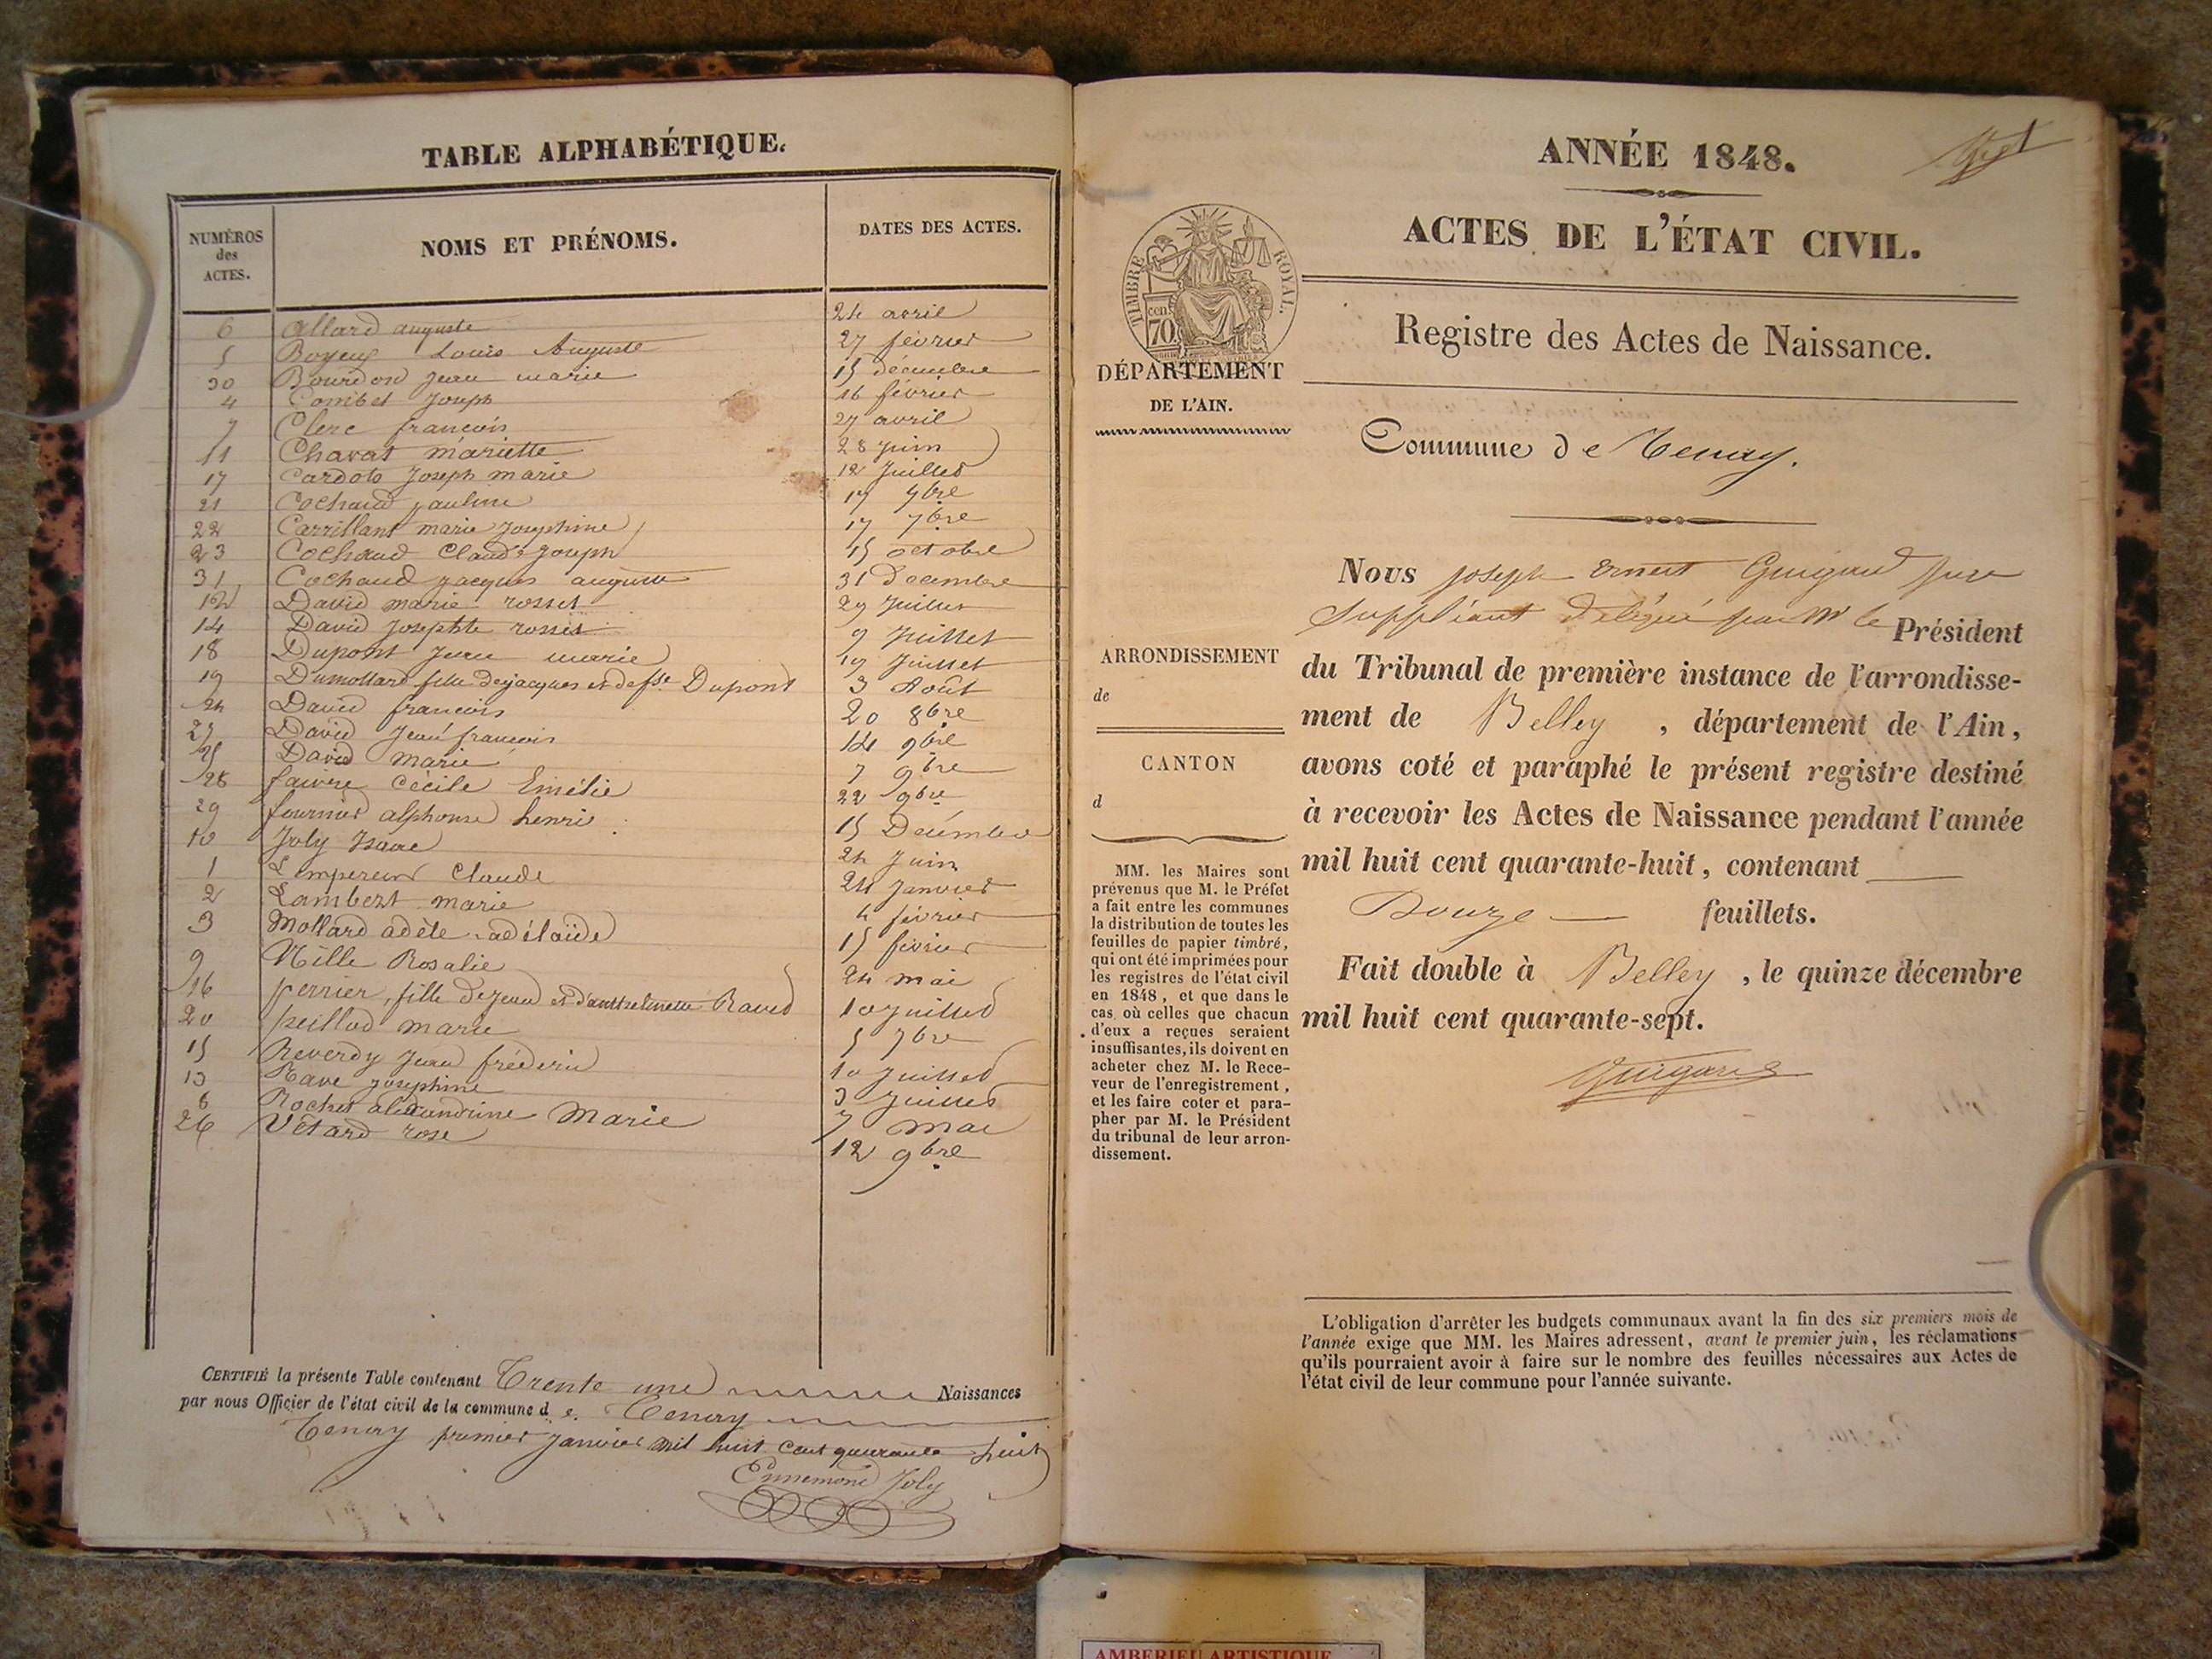 TABLE ALPHABÉTIQUE.
NUMÉROS des ACTES. NOMS ET PRÉNOMS. DATES DES ACTES.
6 Allard auguste 24 avril
5 Boyeux Louis Auguste 27 février
30 Bourdon Jean marie 15 décembre
4 Combet Joseph 16 février
7 Clerc francois 27 avril
11 Chavat mariette 28 Juin
17 Cardoto Joseph marie 12 Juillet
21 Cochaud pauline 17 7bre
22 Carrillant marie Josephine 17 7bre
23 Cochaud Claude Joseph 15 octobre
31 Cochaud Jacques auguste 31 Decembre
12 David marie rosset 29 Juillet
14 David Josephte 9 Juillet
18 Dupont Jean marie 19 Juillet
19 Dumollard fille de jacques et de fse Dupont 3 Août
24 David francois 20 8bre
27 David Jean francois 14 9bre
25 David Marie 7 9bre
28 faivre Cécile Emélie 22 9bre
29 fournier alphonse henri 15 Décembre
10 Joly Isaac 24 Juin
1 Lempereur Claude 24 Janvier
2 Lambert marie 4 février
3 Mollard adèle adélaïde 15 février
9 Mille Rosalie 24 mai
16 perrier, fille de jean et d'anthelmette Ravet 10 juillet
20 peillod marie 5 7bre
15 Reverdy Jean fréderic 10 Juillet
13 Rave josephine 3 Juillet
8 Rochet alexandrine Marie 7 mai
26 Vétard rose 12 9bre
CERTIFIÉ la présente Table contenant Trente une Naissances
par nous Officier de l'état civil de la commune de Tenay
Tenay premier Janvier mil huit cent quarante huit
Ennemond Joly
ANNÉE 1848.
ACTES DE L'ÉTAT CIVIL.
TIMBRE ROYAL.
cen. 70
DÉPARTEMENT
DE L'AIN.
Registre des Actes de Naissance.
Commune de Tenay.
ARRONDISSEMENT
de
CANTON
d
MM. les Maires sont
prévenus que M. le Préfet
a fait entre les communes
la distribution de toutes les
feuilles de papier timbré,
qui ont été imprimées pour
les registres de l'état civil
en 1848, et que dans le
cas où celles que chacun
d'eux a reçues seraient
insuffisantes, ils doivent en
acheter chez M. le Rece-
veur de l'enregistrement,
et les faire coter et para-
pher par M. le Président
du tribunal de leur arron-
dissement.
Nous joseph Ernest Guigard juge
Suppléant Délégué par Mr le Président
du Tribunal de première instance de l'arrondisse-
ment de Belley, département de l'Ain,
avons coté et paraphé le présent registre destiné
à recevoir les Actes de Naissance pendant l'année
mil huit cent quarante-huit, contenant
Douze feuillets.
Fait double à Belley, le quinze décembre
mil huit cent quarante-sept.
Guigard
L'obligation d'arrêter les budgets communaux avant la fin des six premiers mois de
l'année exige que MM. les Maires adressent, avant le premier juin, les réclamations
qu'ils pourraient avoir à faire sur le nombre des feuilles nécessaires aux Actes de
l'état civil de leur commune pour l'année suivante.
AMBERIEU ARTISTIQUE